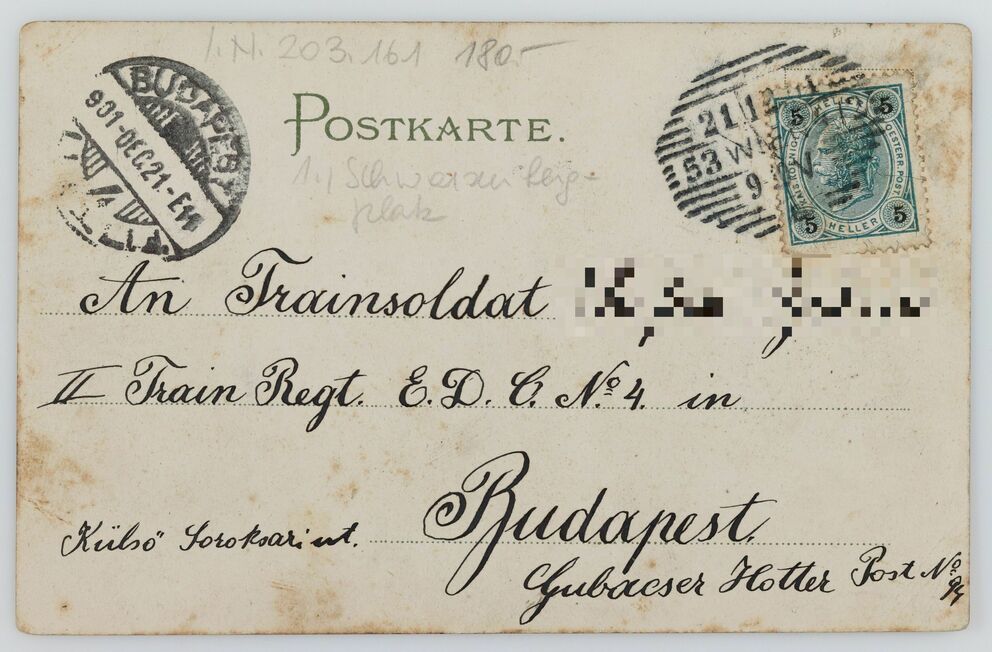 I.N. 203.161 180.-
BUDAPEST
901-DEC.21-E
POSTKARTE.
21 12
53 WIEN
9
5 HELLER 5
OESTERR. POST
5 HELLER 5
1.) Schwarzenberg-
platz
An Trainsoldat
II Train Regt. E. D. C. No. 4. in
Budapest.
Külsö Soroksari ut.
Gubacser Hotter Post No.
94